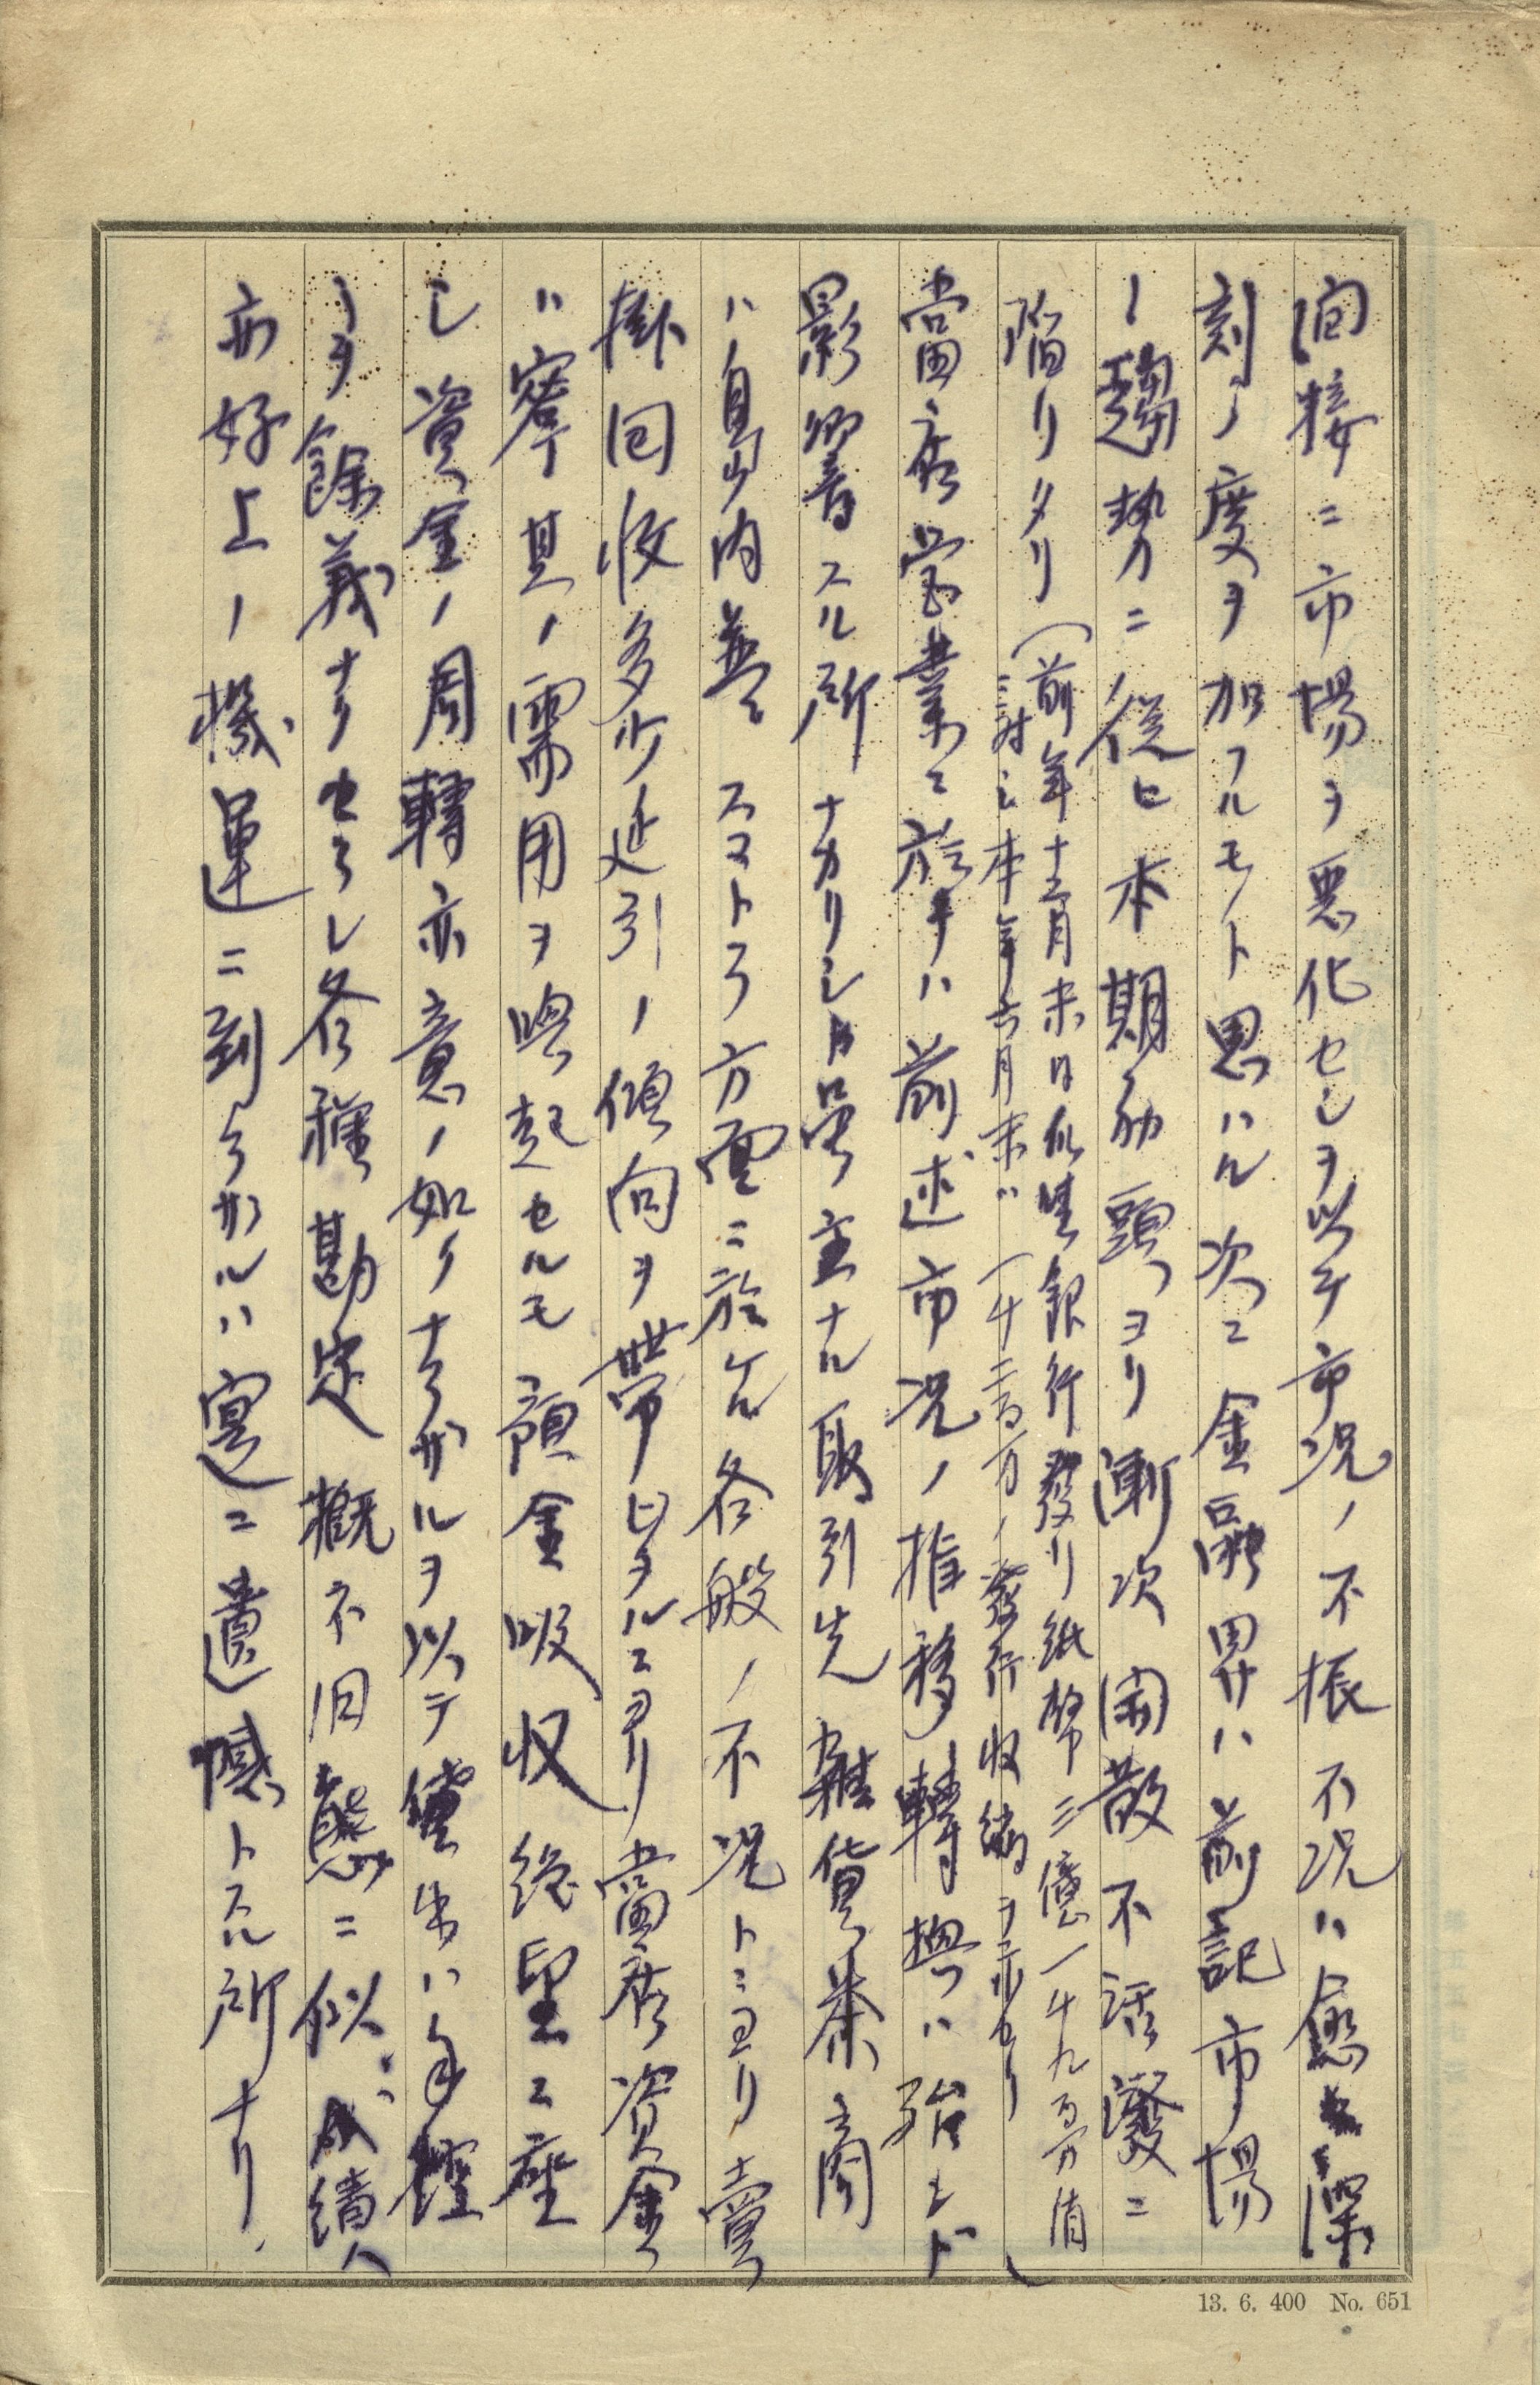 間接ニ市場ヲ悪化セシヲ以テ市况ノ不振不况ハ愈々深
刻ノ度ヲ加フルモノト思ハル次ニ金融界ハ前記市場
ノ趨勢ニ從ヒ本期劢頭ヨリ漸次閑散不活潑ニ
陥リタリ(前年十二月末日瓜哇銀行發行紙幣三億一千九百万盾
ニ対シ本年六月末〃一千二百万ノ發行收縮ヲ示セリ)
當店営業ニ於テハ前述市况ノ推移轉換ハ殆ンド
影響スル所ナカリシカ只主ナル取引先雜貨茶商
ハ島内並ニスマトラ方面ニ於ケル各般ノ不况トニヨリ賣
掛回收多少延引ノ傾向ヲ帯ビタルニヨリ當店資金
ハ寧其ノ需用ヲ喚起セルモ預金吸收絶望ニ座
シ資金ノ周轉亦意ノ如クナラザルヲ以テ貸出ハ手控
ヲ餘義ナクセラレ各種勘定概不旧態ニ似成績ハ
亦好上ノ機運ニ到ラザルハ寔ニ遺憾トスル所ナリ、
13. 6. 400 No. 651